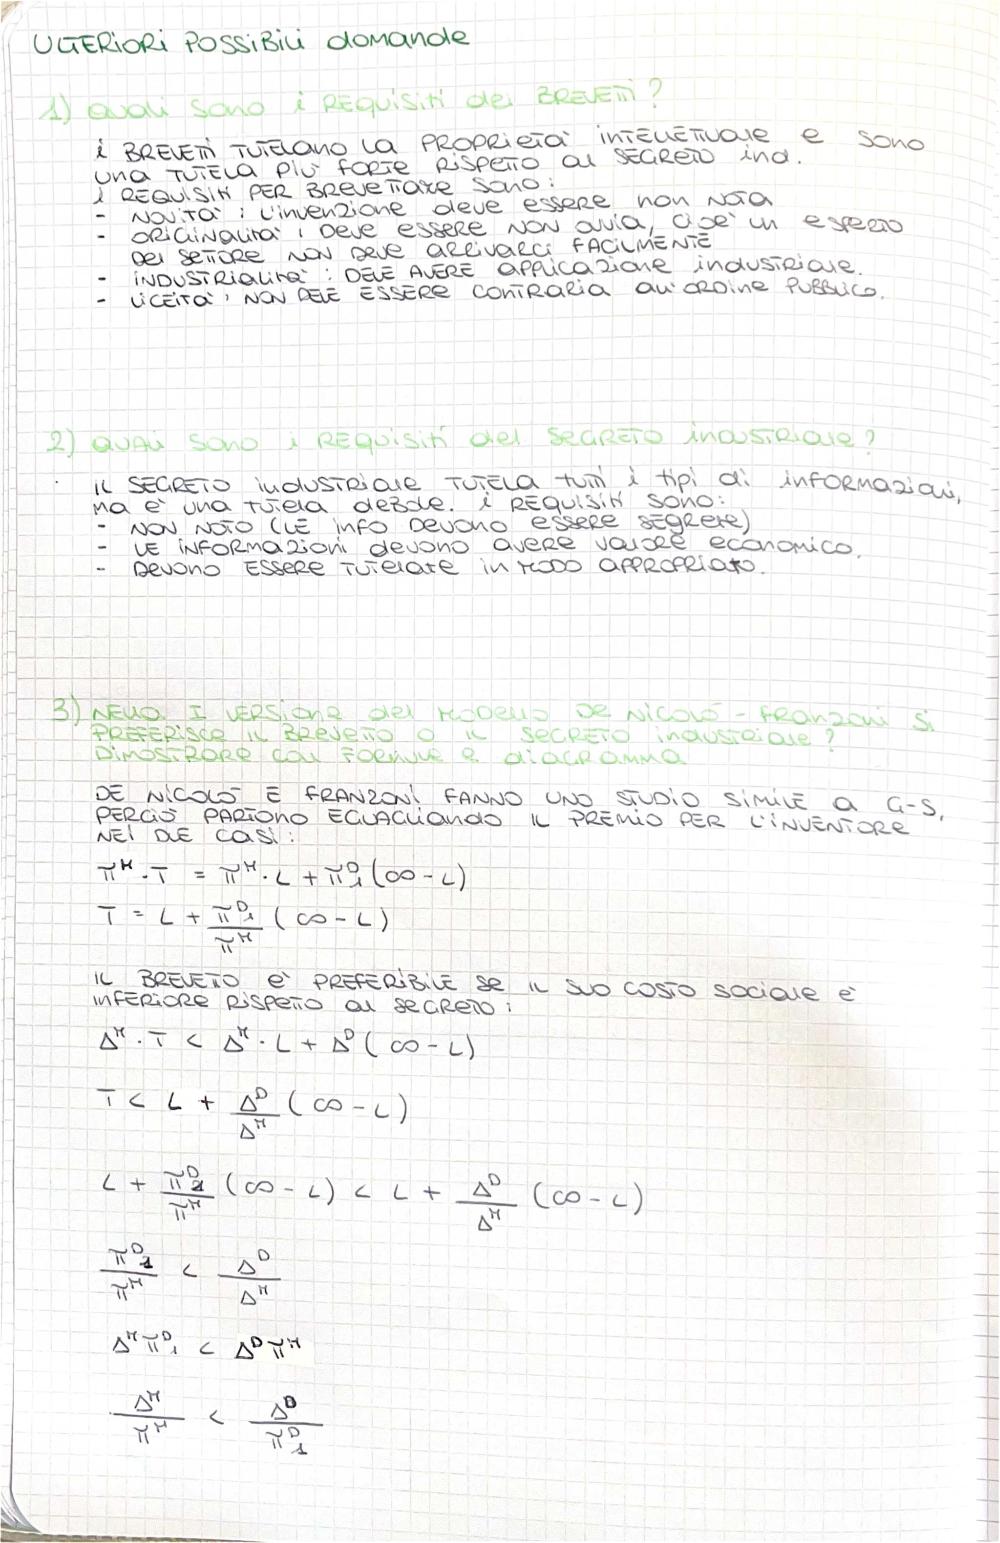 ULTERIORI POSSIBILI domande
1) Quali sono i REQUISITI dei BREVETTI?
i BREVETTI TUTELANO LA PROPRIETA' INTELLETTUALE e sono
una TUTELA PIÙ FORTE RISPETTO al SEGRETO ind.
i REQUISITI PER BREVETTARE sono:
- NOVITA': L'invenzione deve essere non nota
- ORIGINALITA': DEVE essere NON OVVIA, cioè un esperto
DEL SETTORE NON DEVE ARRIVARCI FACILMENTE
- INDUSTRIALITA': DEVE AVERE APPLICAZIONE industriale.
- LICEITA': NON DEVE ESSERE CONTRARIA all'ORDINE PUBBLICO.
2) QUALI sono i REQUISITI del SEGRETO industriale?
IL SEGRETO industriale TUTELA tutti i tipi di INFORMAZIONI,
ma è una tutela debole. i REQUISITI sono:
- NON NOTO (LE info DEVONO essere SEGRETE)
- LE INFORMAZIONI devono avere valore economico.
- Devono ESSERE TUTELATE in MODO APPROPRIATO.
3) NELLA I VERSIONE del MODELLO DE NICOLÒ - FRANZONI SI
PREFERISCE IL BREVETTO O IL SEGRETO industriale?
DIMOSTRARE con FORMULE e diagramma
DE NICOLÒ E FRANZONI FANNO UNO STUDIO SIMILE A G-S,
PERCIÒ PARTONO EGUAGLIANDO IL PREMIO PER L'INVENTORE
NEI DUE CASI:
π^M · T = π^M · L + π^D_1 (∞ - L)
T = L + π^D_1/π^M (∞ - L)
IL BREVETTO è PREFERIBILE SE IL SUO COSTO sociale è
INFERIORE RISPETTO al SEGRETO:
Δ^M · T < Δ^M · L + Δ^D (∞ - L)
T < L + Δ^D/Δ^M (∞ - L)
L + π^D_1/π^M (∞ - L) < L + Δ^D/Δ^M (∞ - L)
π^D_1/π^M < Δ^D/Δ^M
Δ^M π^D_1 < Δ^D π^M
Δ^M/π^M < Δ^D/π^D_1